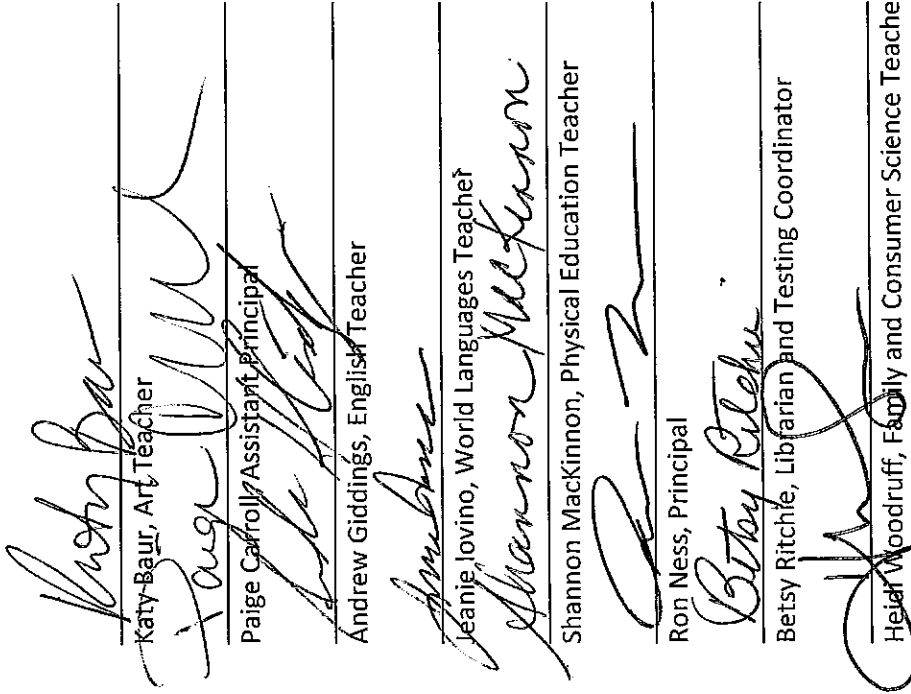 Katy Baur, Art Teacher
Paige Carroll, Assistant Principal
Andrew Giddings, English Teacher
Jeanie Iovino, World Languages Teacher
Shannon MacKinnon
Shannon MacKinnon, Physical Education Teacher
Ron Ness, Principal
Betsy Ritchie
Betsy Ritchie, Librarian and Testing Coordinator
Heidi Woodruff, Family and Consumer Science Teache